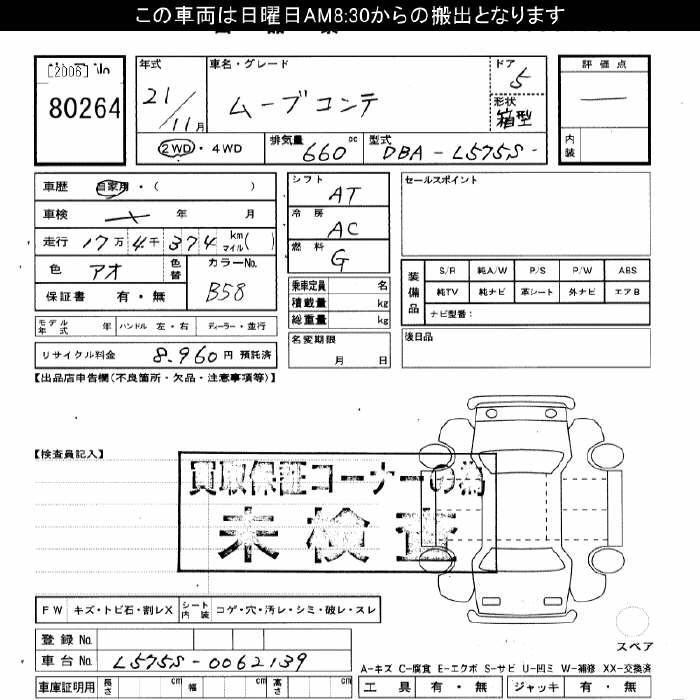 この車両は日曜日AM8:30からの搬出となります
[2006] No
80264
年式
21/11月
車名・グレード
ムーブコンテ
ドア
5
形状
箱型
評価点
内装
2WD・4WD
排気量
660 cc
型式
DBA-L575S-
車歴 自家用・( )
車検 年 月
走行 17万 4千 374 km マイル( )
色 アオ 色替
カラーNo.
B58
保証書 有・無
モデル年式 年 ハンドル 左・右 ディーラー・並行
リサイクル料金 8,960円 預託済
シフト
AT
冷房
AC
燃料
G
乗車定員 名
積載量 kg
総重量 kg
名変期限
月 日
セールスポイント
装備品
S/R 純A/W P/S P/W ABS
純TV 純ナビ 革シート 外ナビ エアB
ナビ型番:
後日品
【出品店申告欄(不良箇所・欠品・注意事項等)】
【検査員記入】
買取保証コーナーの為
未検査
FW キズ・トビ石・割レX シート内装 コゲ・穴・汚レ・シミ・破レ・スレ
登録No.
車台No. L575S-0062139
車庫証明用 長さ cm 幅 cm 高さ cm
スペア
A-キズ C-腐食 E-エクボ S-サビ U-凹ミ W-補修 XX-交換済
工具 有・無 ジャッキ 有・無